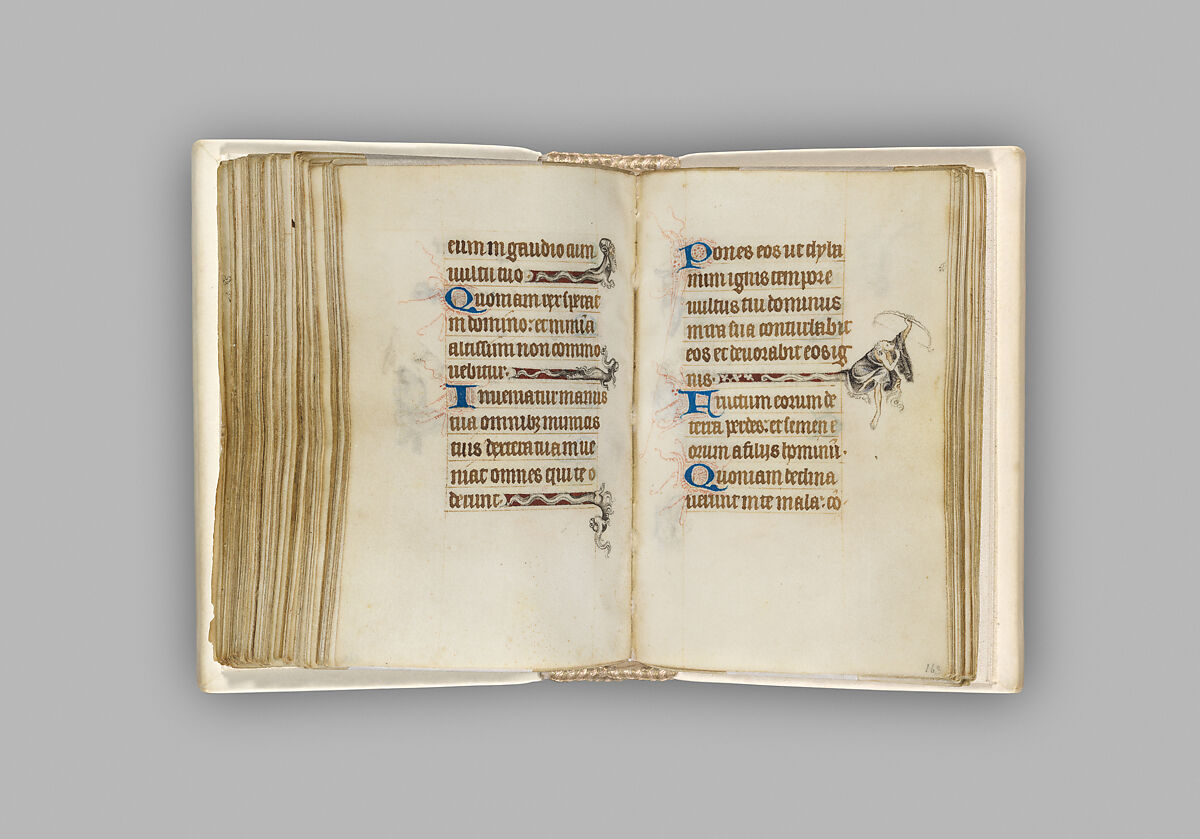 eum in gaudio cum
uultu tuo
Quoniam rex sperat
in domino: et in mīa
altissim non commo
uebitur.
Inueniatur manus
tua omnibꝫ inimicis
tuis dextera tua inue
niat omnes qui te o
derunt.
Pones eos ut clyba
num ignis tempore
uultus tui dominus
in ira sua conturbabit
eos et deuorabit eos ig
nis.
Fructum eorum de
terra perdes: et semen e
orum a filijs hominū.
Quoniam declina
uerunt in te mala: co
163